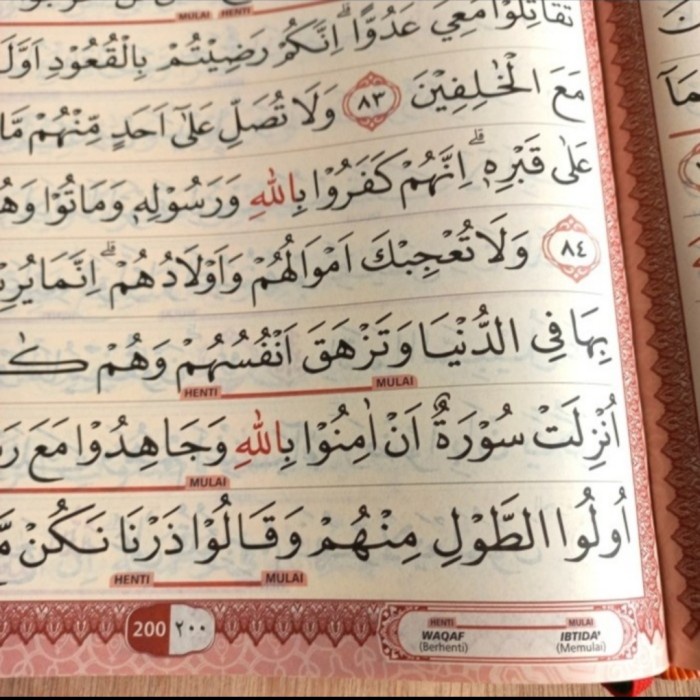 MULAI HENTI
تُقَاتِلُوْا مَعِيَ عَدُوًّاۗ اِنَّكُمْ رَضِيْتُمْ بِالْقُعُوْدِ اَوَّلَ
مَعَ الْخٰلِفِيْنَ ٨٣ وَلَا تُصَلِّ عَلٰٓى اَحَدٍ مِّنْهُمْ مَّا
عَلٰى قَبْرِهٖۗ اِنَّهُمْ كَفَرُوْا بِاللّٰهِ وَرَسُوْلِهٖ وَمَاتُوْا
٨٤ وَلَا تُعْجِبْكَ اَمْوَالُهُمْ وَاَوْلَادُهُمْۗ اِنَّمَا
بِهَا فِى الدُّنْيَا وَتَزْهَقَ اَنْفُسُهُمْ وَهُمْ
HENTI MULAI
اُنْزِلَتْ سُوْرَةٌ اَنْ اٰمِنُوْا بِاللّٰهِ وَجَاهِدُوْا مَعَ
MULAI
اُولُوا الطَّوْلِ مِنْهُمْ وَقَالُوْا ذَرْنَا نَكُنْ
HENTI MULAI
200 ٢٠٠
HENTI MULAI
WAQAF IBTIDA'
(Berhenti) (Memulai)